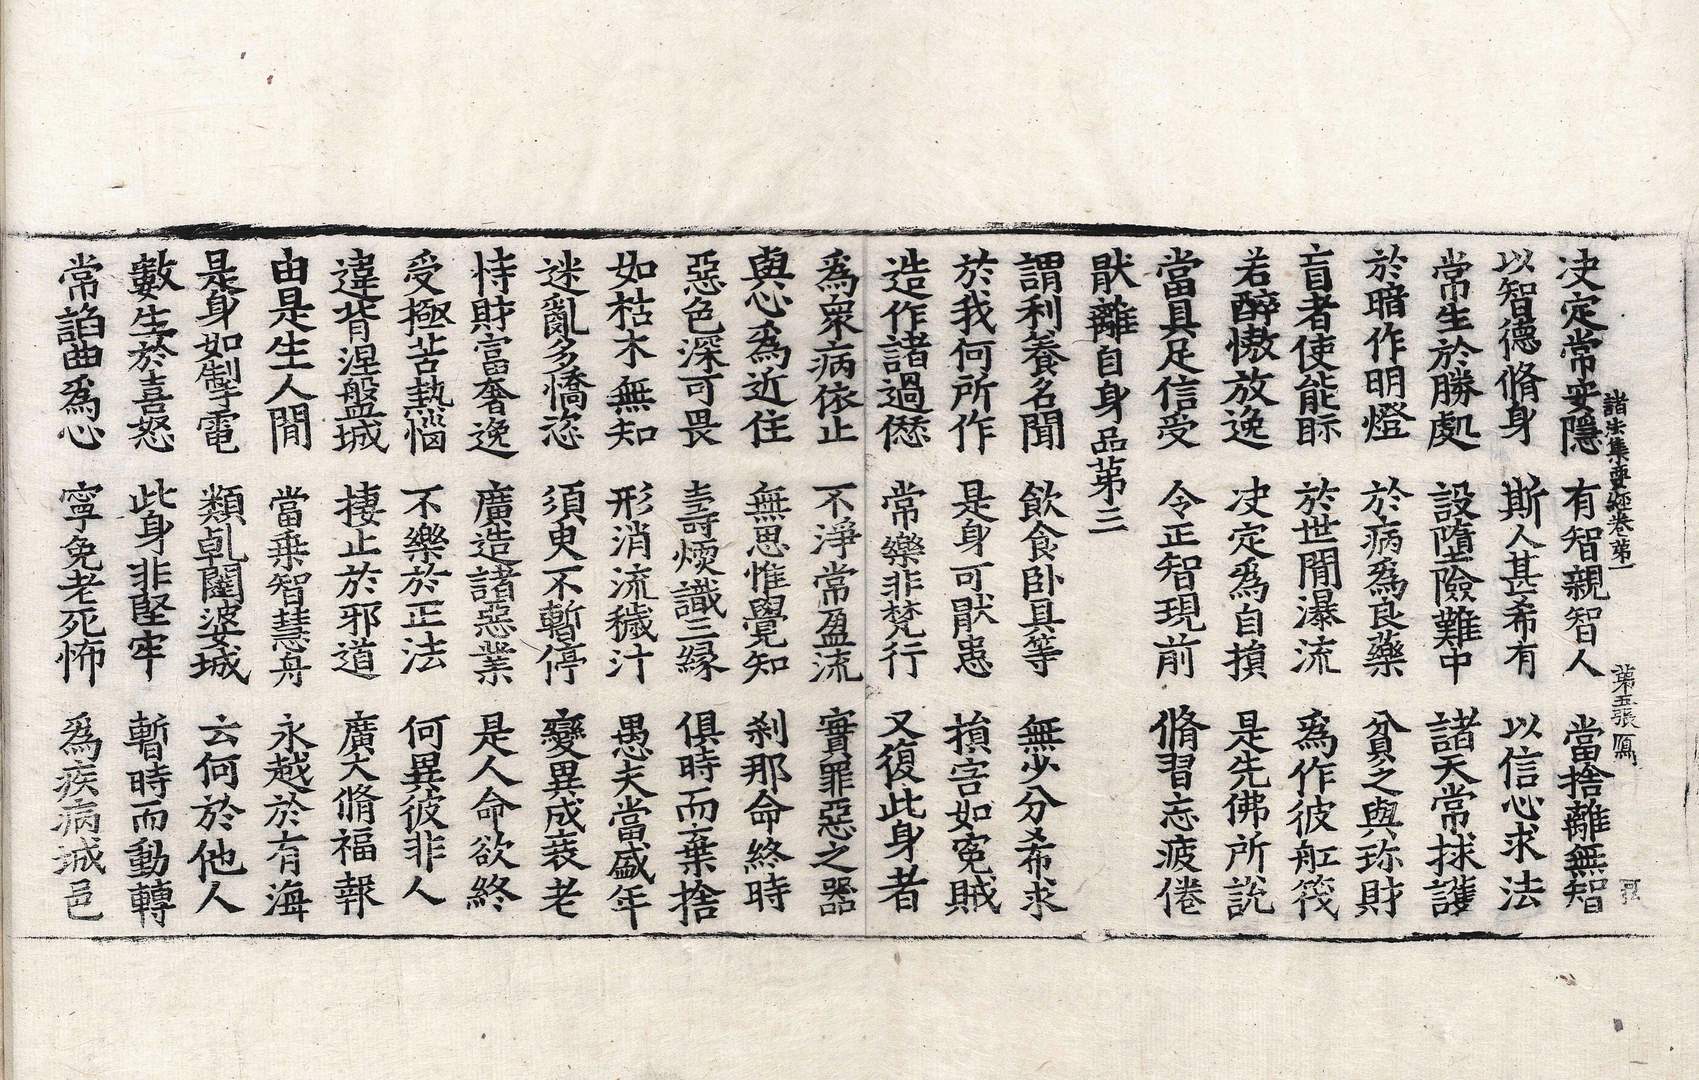 諸法集要經卷第一 第五張 鳳
决定常安隱 有智親智人 當捨離無智
以智德脩身 斯人甚希有 以信心求法
常生於勝處 設墮險難中 諸天常捄護
於暗作明燈 於病爲良藥 貧之與珎財
盲者使能眎 於世間瀑流 爲作彼舡筏
若醉慠放逸 决定爲自損 是先佛所說
當具足信受 令正智現前 脩習忘疲倦
猒離自身品第三
謂利養名聞 飲食卧具等 無少分希求
於我何所作 是身可猒患 損害如寃賊
造作諸過愆 常樂非梵行 又復此身者
爲衆病依止 不淨常盈流 實罪惡之器
與心爲近住 無思惟覺知 刹那命終時
惡色深可畏 壽煗識三緣 俱時而棄捨
如枯木無知 形消流穢汁 愚夫當盛年
迷亂多憍恣 須臾不暫停 變異成衰老
恃財富奢逸 廣造諸惡業 是人命欲終
受極苦熱惱 不樂於正法 何異彼非人
違背涅盤城 捿止於邪道 廣大脩福報
由是生人間 當乗智慧舟 永越於有海
是身如掣電 類乹闥婆城 云何於他人
數生於喜怒 此身非堅牢 暫時而動轉
常諂曲爲心 寧免老死怖 爲疾病城邑